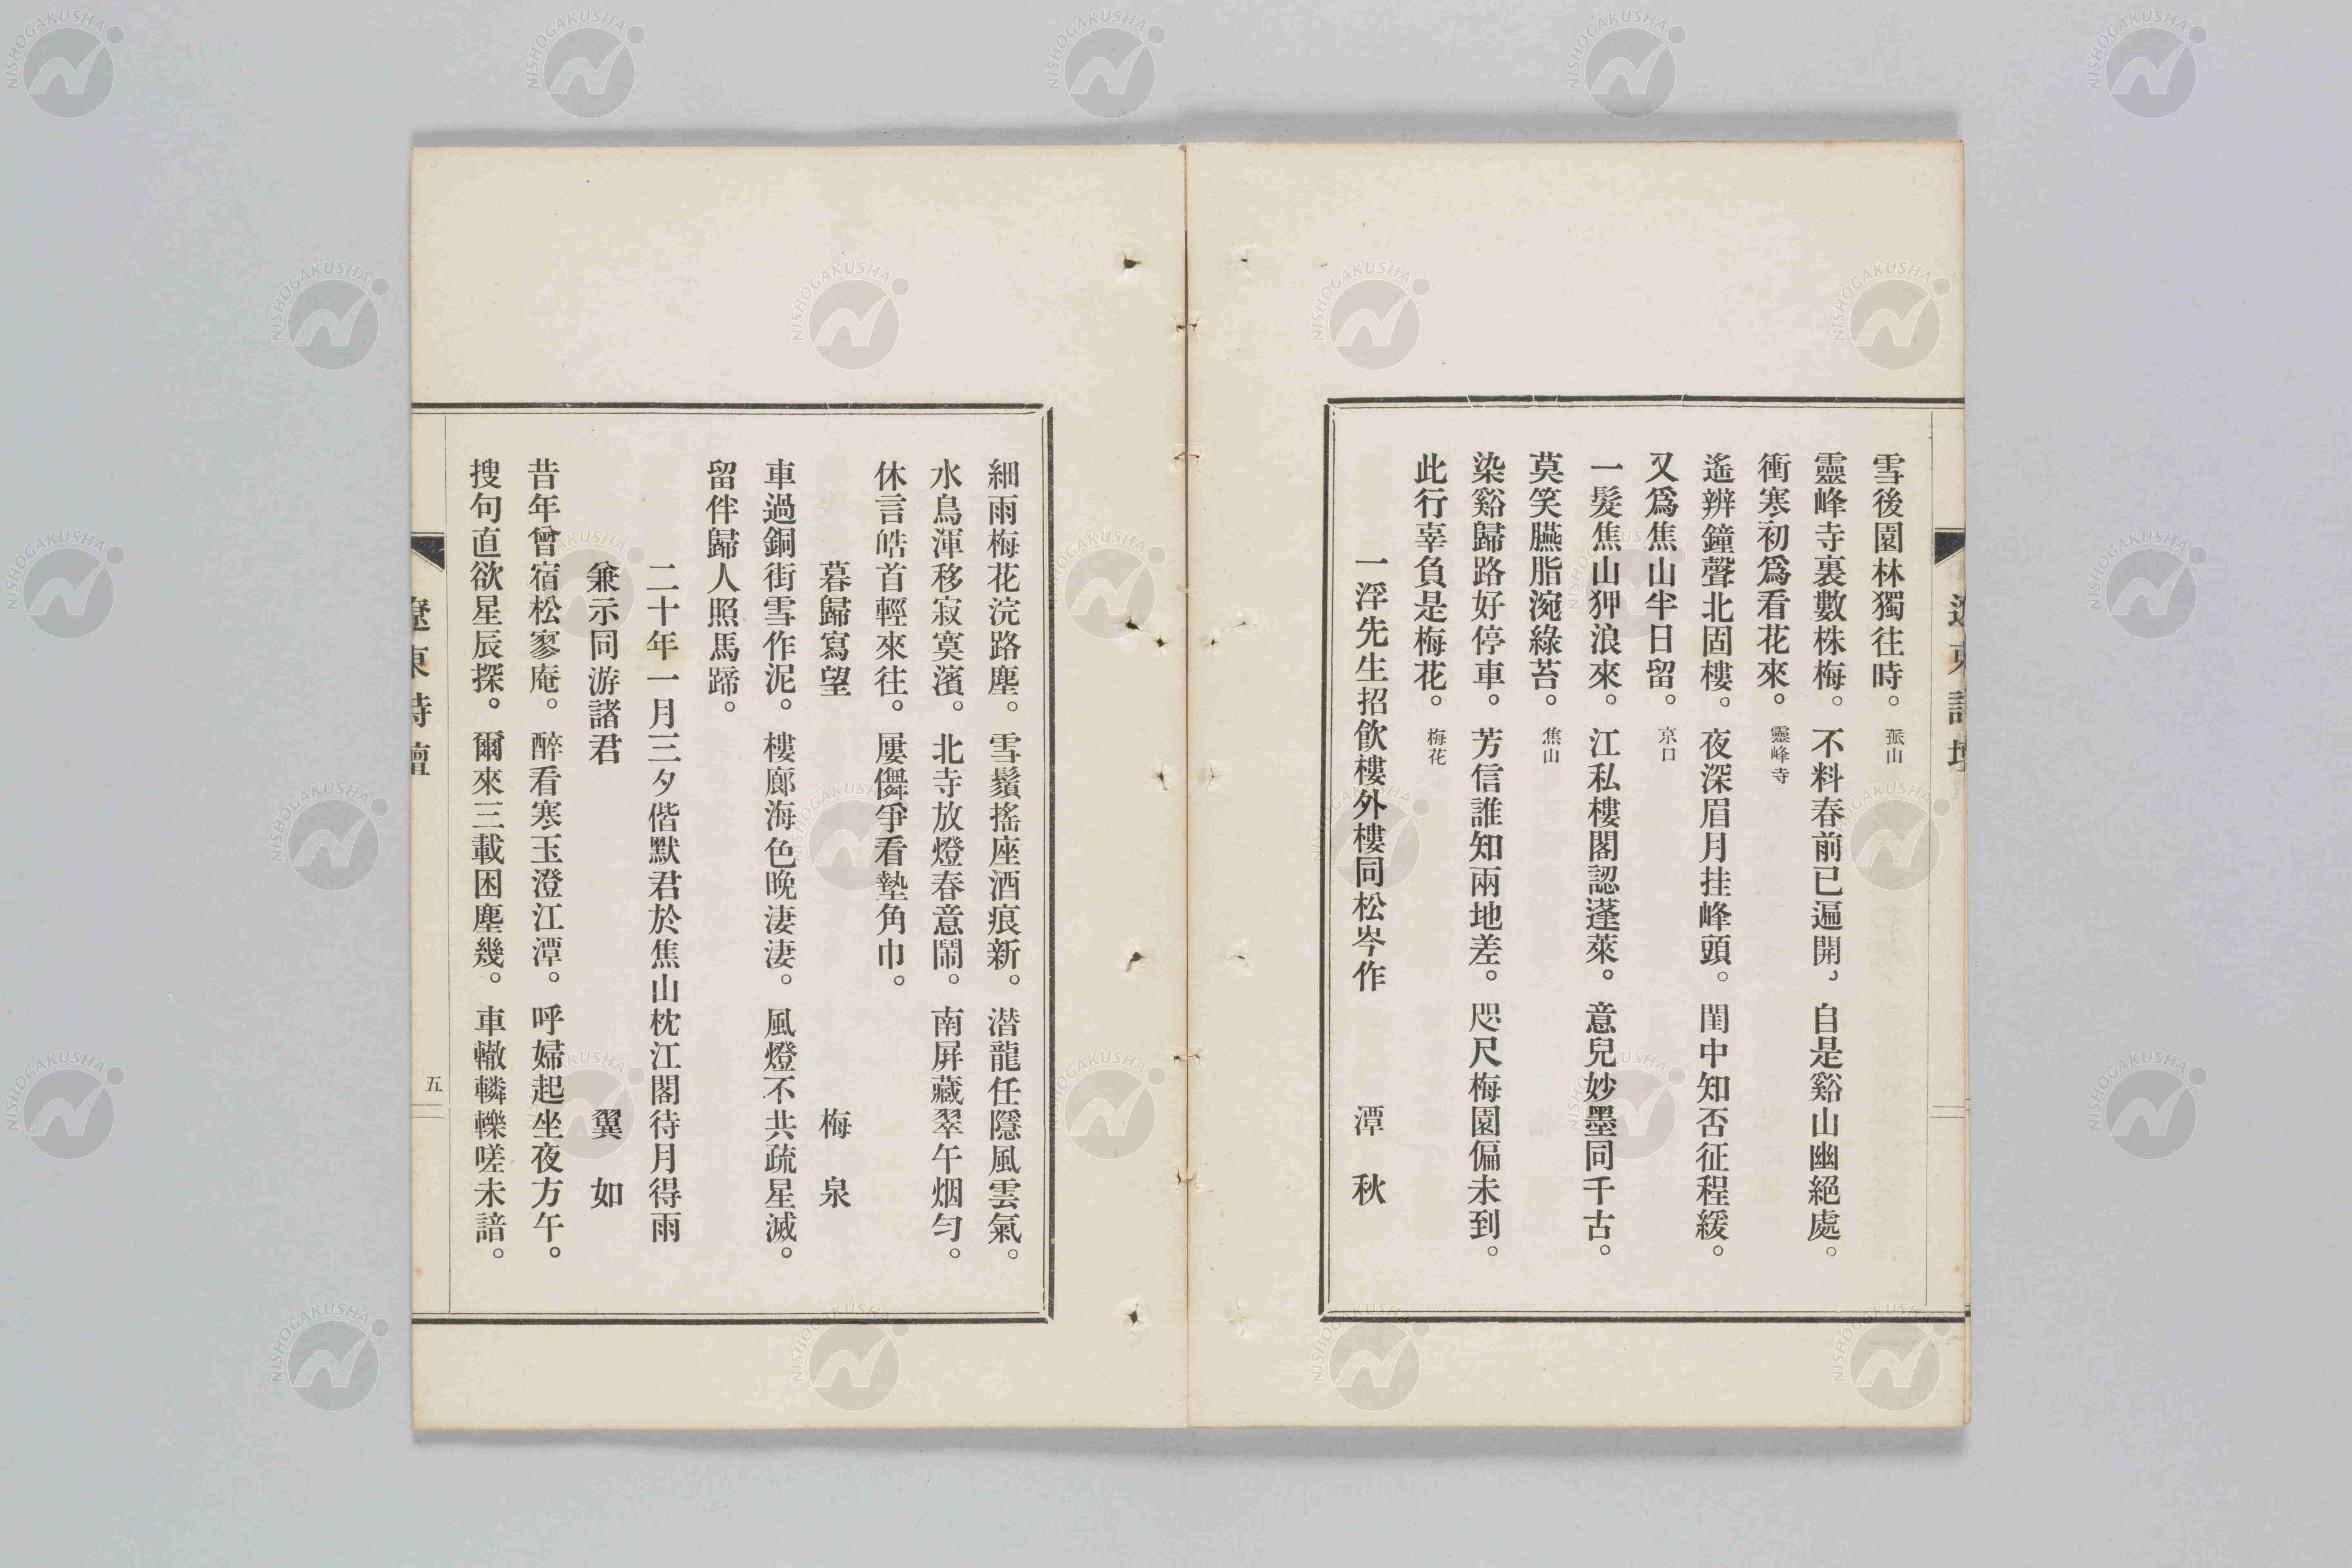 雪後園林獨往時。孤山
靈峰寺裏數株梅。不料春前已遍開，自是谿山幽絕處。
衝寒初爲看花來。靈峰寺
遙辨鐘聲北固樓。夜深眉月挂峰頭。閨中知否征程緩。
又爲焦山半日留。京口
一髮焦山狎浪來。江私樓閣認蓬萊。意兒妙墨同千古。
莫笑臙脂涴綠苔。焦山
染谿歸路好停車。芳信誰知兩地差。咫尺梅園偏未到。
此行辜負是梅花。梅花
一浮先生招飮樓外樓同松岑作 潭 秋
細雨梅花浣路塵。雪鬚搖座酒痕新。潜龍任隱風雲氣。
水鳥渾移寂寞濱。北寺放燈春意鬧。南屛藏翠午烟勻。
休言皓首輕來往。屢儛爭看墊角巾。
暮歸寫望 梅 泉
車過銅街雪作泥。樓廊海色晚淒淒。風燈不共疏星滅。
留伴歸人照馬蹄。
二十年一月三夕偕默君於焦山枕江閣待月得雨
兼示同游諸君 翼 如
昔年曾宿松寥庵。醉看寒玉澄江潭。呼婦起坐夜方午。
搜句直欲星辰探。爾來三載困塵幾。車轍轔轢嗟未諳。
遼東詩壇
五